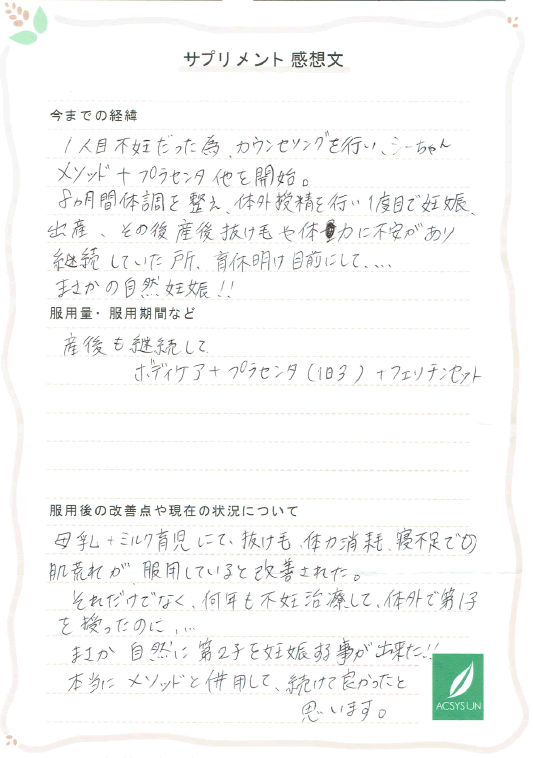 サプリメント 感想文
今までの経緯
1人目不妊だった為、カウンセリングを行い、シーちゃん
メソッド+プラセンタ他を開始。
8ヵ月間体調を整え、体外授精を行い1度目で妊娠、
出産、その後産後抜け毛や体力に不安があり
継続していた所、育休明け目前にして、...
まさかの自然妊娠!!
服用量・服用期間など
産後も継続して
ボディケア+プラセンタ(1日3)+フェリチンセット
服用後の改善点や現在の状況について
母乳+ミルク育児にて、抜け毛、体力消耗、寝不足での
肌荒れが服用していると改善された。
それだけでなく、何年も不妊治療して、体外で第1子
を授ったのに、...
まさか自然に第2子を妊娠する事が出来た!!
本当にメソッドと併用して、続けて良かったと
思います。
ACSYSUN